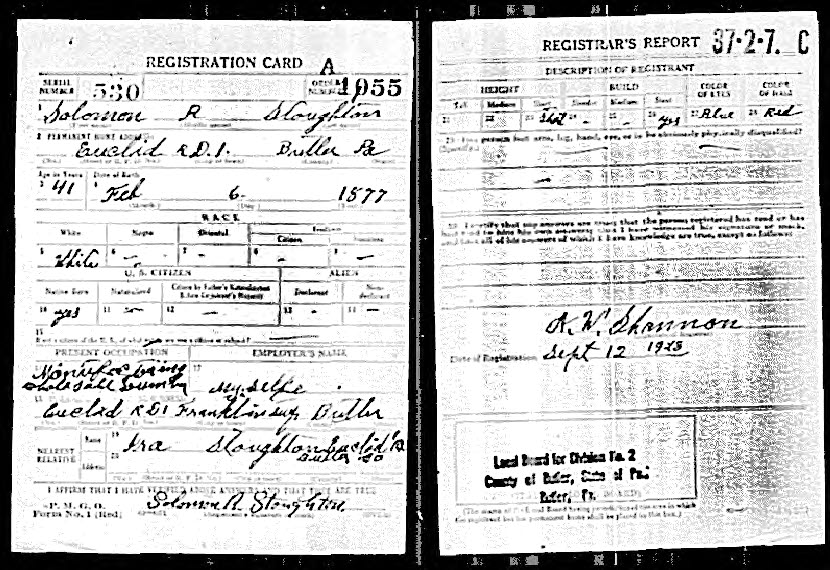 REGISTRATION CARD A
SERIAL NUMBER 530 ORDER NUMBER 1055
1 Solomon R Stoughton
2 PERMANENT HOME ADDRESS
Euclid R.D.1. Butler Pa
Age in Years Date of Birth
3 41 4 Feb 6 1877
RACE
White Negro Oriental
Citizen
5 White 6 - 7 - 8 - 9 -
U. S. CITIZEN ALIEN
Native Born Naturalized Citizen by Father's Naturalization Before Registrant's Majority Declarant Non-declarant
10 yes 11 - 12 - 13 - 14 -
15
PRESENT OCCUPATION EMPLOYER'S NAME
my selfe
Euclid R D1 Franklin Butler
NEAREST RELATIVE
Name 19 Ira Stoughton Euclid
Address 20 Butler
I AFFIRM THAT I HAVE VERIFIED ABOVE ANSWERS AND THAT THEY ARE TRUE
P. M. G. O.
Form No. 1 (Red)
Solomon R. Stoughton
REGISTRAR'S REPORT 37-2-7. C
DESCRIPTION OF REGISTRANT
HEIGHT BUILD COLOR OF EYES COLOR OF HAIR
Tall Medium Short Slender Medium Stout
21 22 23 24 25 26 yes 27 Blue 28 Red
29 Has person lost arm, leg, hand, eye, or is he obviously physically disqualified?
(Specify.)
30 I certify that my answers are true; that the person registered has read or has
had read to him his own answers; that I have witnessed his signature or mark,
and that all of his answers of which I have knowledge are true, except as follows:
Date of Registration Sept 12
Local Board for Division No. 2
County of Butler, State of Pa.
Butler, Pa.
(The stamp of the Local Board having jurisdiction of the area in which
the registrant has his permanent home shall be placed in this box.)